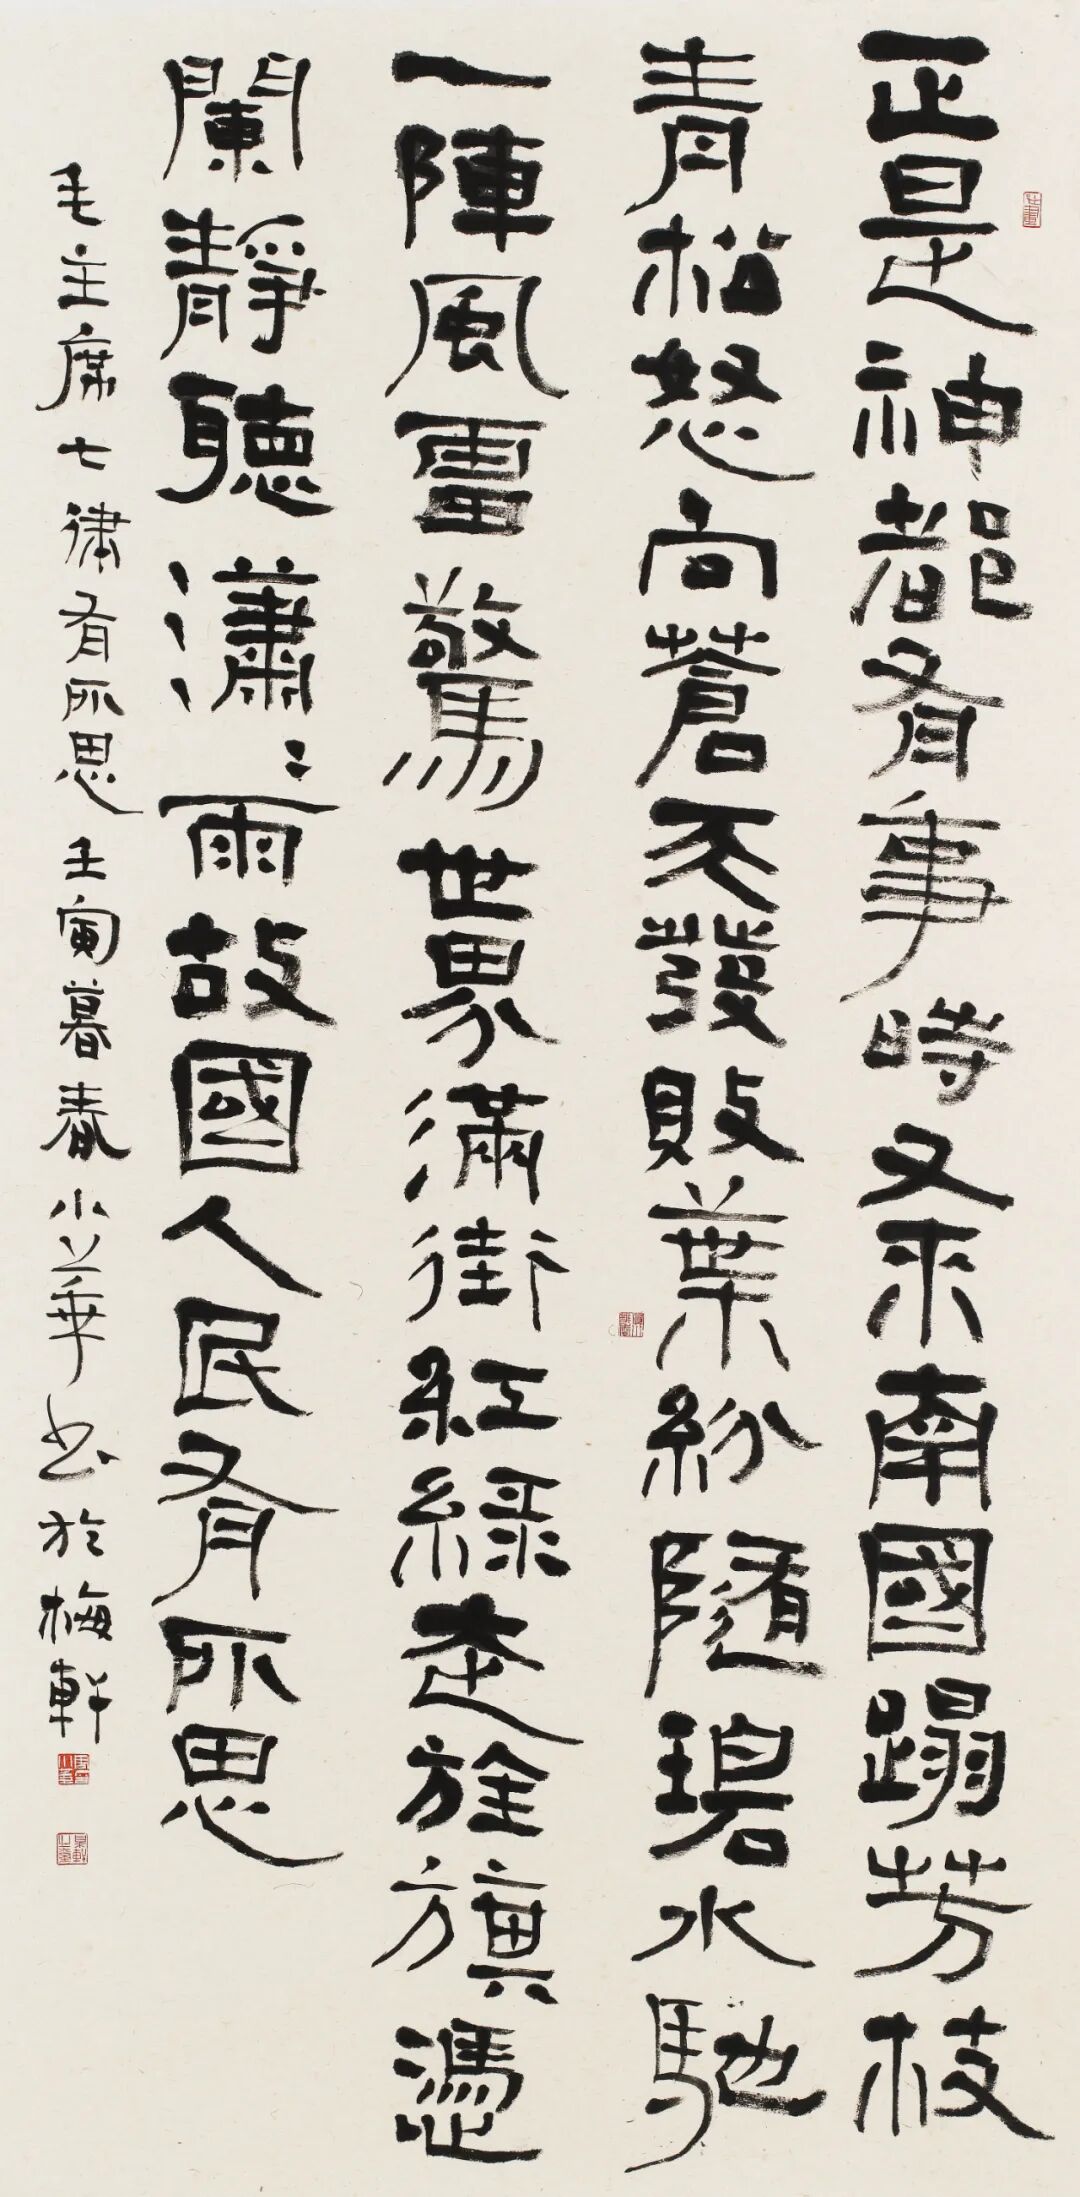 正是神都有事時又來南國蹋芳枝
青松怒向蒼天發敗葉紛隨碧水馳
一陣風雷驚世界滿街紅綠走旌旗憑
闌靜聽瀟〻雨故國人民有所思
毛主席七律有所思 壬寅暮春小華书於梅軒